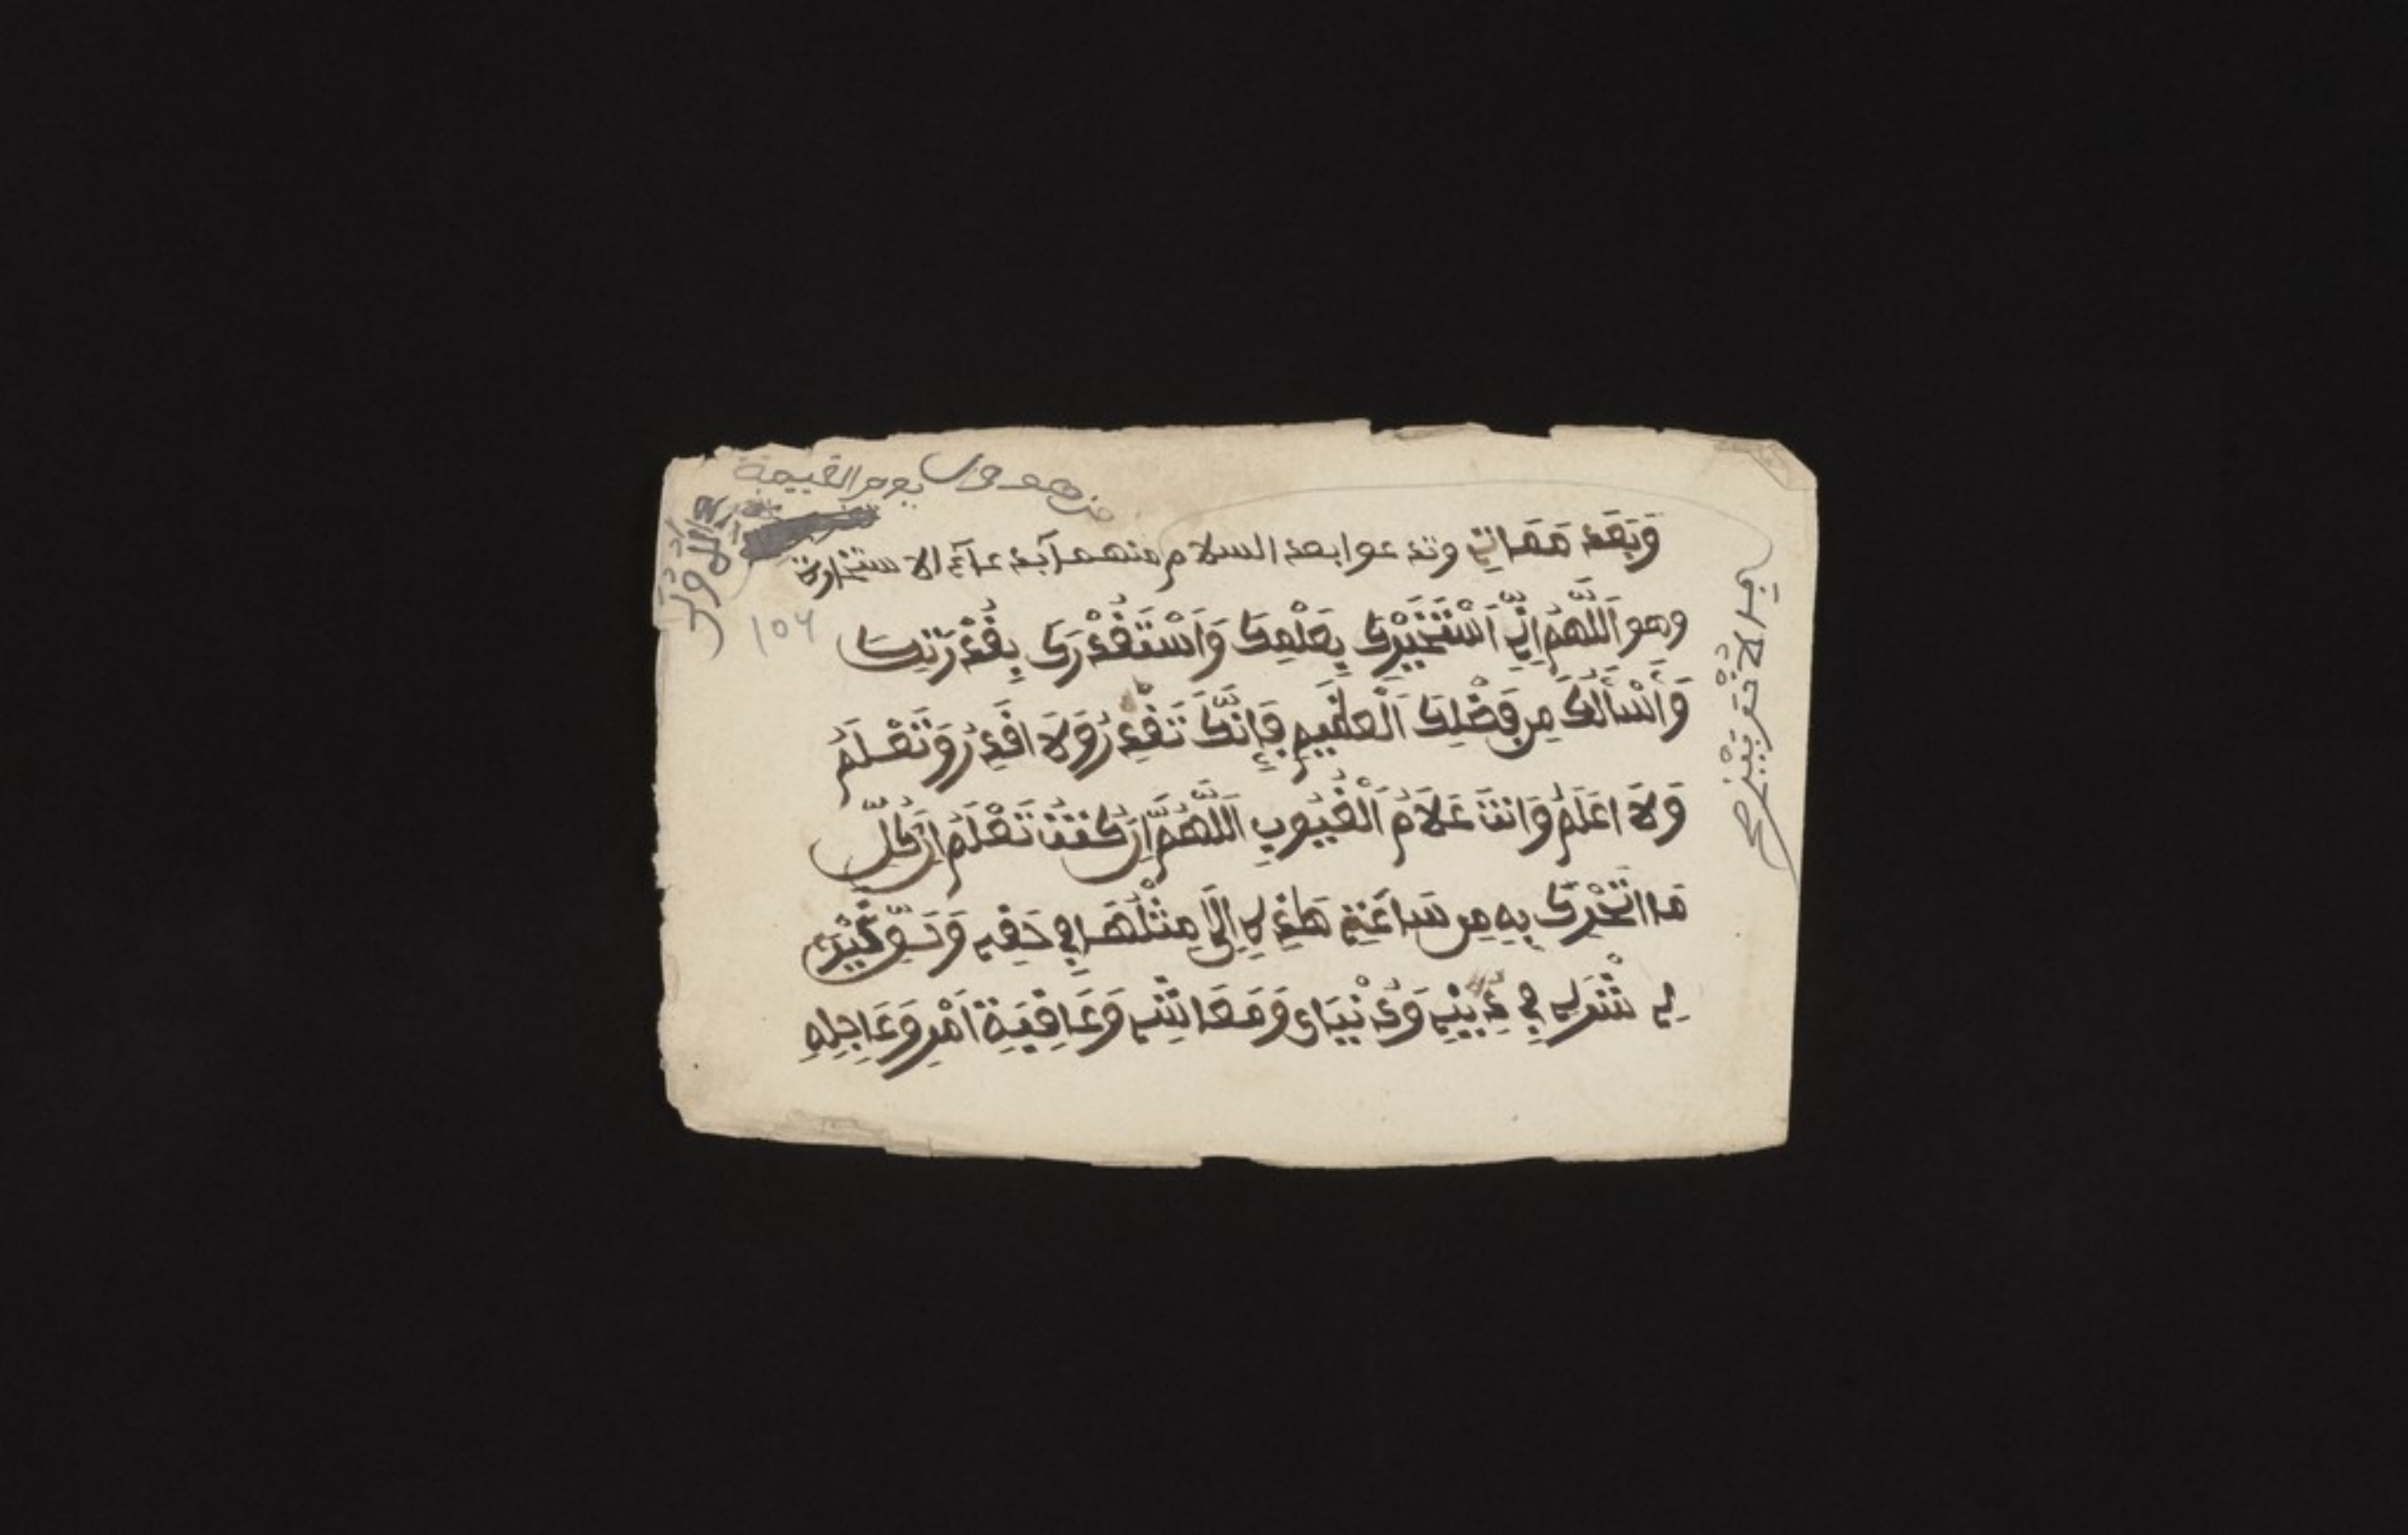 يوم القيمة
وَبَعْدَ مَمَاتِي وتدعوا بعد السلام منهما بدعآء الاستخارة
وهو اَللَّهُمَّ اِنِّي اَسْتَخِيْرُكَ بِعِلْمِكَ وَاَسْتَقْدْرُكَ بِقُدْرَتِكَ
وَأَسْأَلُكَ مِن فَضْلِكَ اَلْعَظِيمِ فَإِنَّكَ تَقْدِرُ وَلَا اَقْدِرُ وَتَعْلَمُ
وَلَا اعْلَمُ وَانتَ عَلَّامُ اَلْغُيُوبِ اَللَّهُمَّ اِن كُنتَ تَعْلَمُ اَن كُلّ
مَا اتَحَرَّكَ بِهِ مِن سَاعَتِي هَاذِهِ اِلَى مِثْلِهَا فِي حَقِّي وَحَقِّ غَيْرِي
لِي فِي دِينِي وَدُنْيَاي وَمَعَاشِي وَعَافِيَةِ اَمْرِ وَعَاجِلِهِ